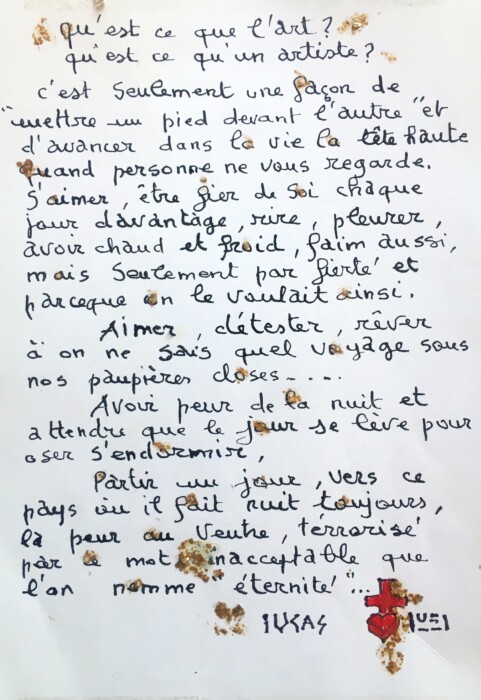 qu'est ce que l'art?
qu'est ce qu'un artiste?
c'est seulement une façon de
"mettre un pied devant l'autre" et
d'avancer dans la vie la tête haute
quand personne ne vous regarde.
S'aimer, être fier de soi chaque
jour davantage, rire, pleurer,
avoir chaud et froid, faim aussi,
mais seulement par fierté et
parceque on le voulait ainsi.
Aimer, détester, rêver
à on ne sais quel voyage sous
nos paupières closes.....
Avoir peur de la nuit et
attendre que le jour se lève pour
oser s'endormire,
Partir un jour, vers ce
pays où il fait nuit toujours,
la peur au ventre, terrorisé
par ce mot inacceptable que
l'on nomme "éternité"...